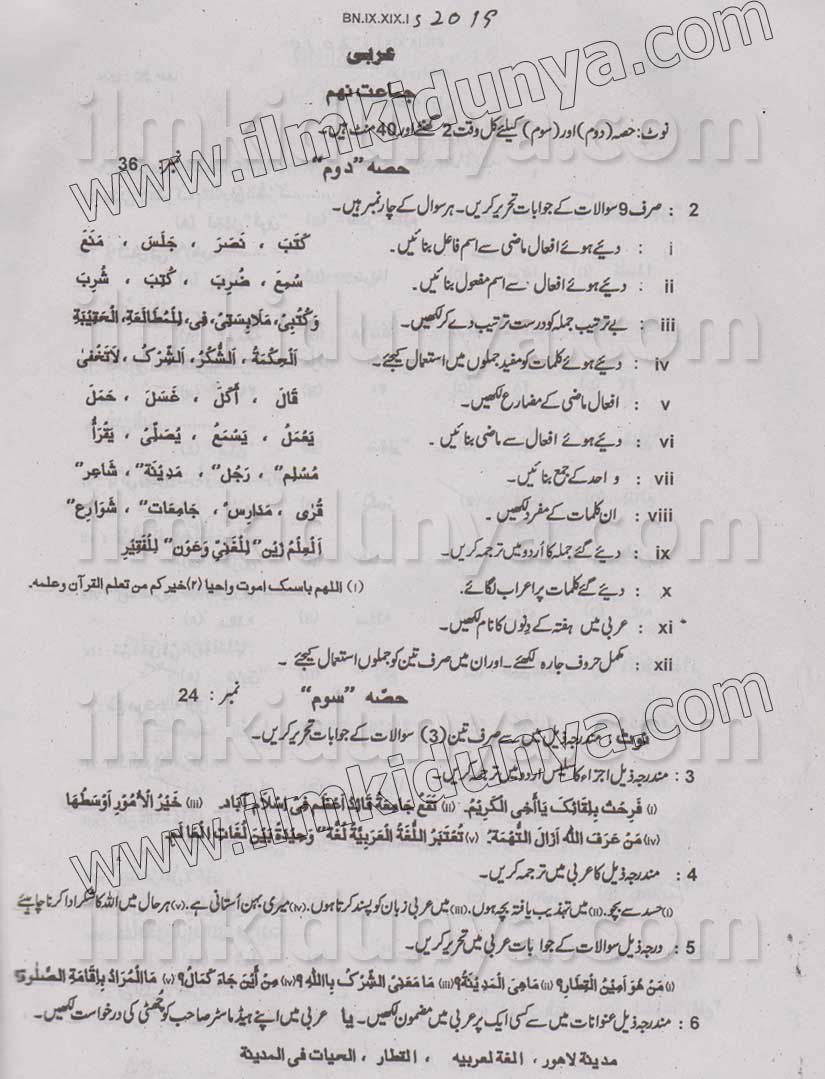 BN.IX.XIX.I s 2019
عربی
جماعت نہم
نوٹ: حصہ (دوم) اور (سوم) کیلئے کل وقت 2 گھنٹے اور 40 منٹ ہیں۔
حصہ "دوم" نمبر: 36
2 : صرف 9 سوالات کے جوابات تحریر کریں۔ ہر سوال کے چار نمبر ہیں۔
i : دیئے ہوئے افعال ماضی سے اسم فاعل بنائیں۔ كَتَبَ ، نَصَرَ ، جَلَسَ ، مَنَعَ
ii : دیئے ہوئے افعال سے اسم مفعول بنائیں۔ سُمِعَ ، ضُرِبَ ، كُتِبَ ، شُرِبَ
iii : بے ترتیب جملہ کو درست ترتیب دے کر لکھیں۔ وَكُتُبِىْ، مَلَابِسَتِىْ، فِى، لِلْمُطَالَعَةِ، الْحَقِيْبَةِ
iv : دیئے ہوئے کلمات کو مفید جملوں میں استعمال کیجئے۔ اَلْحِكْمَةُ ، اَلشُّكْرُ ، اَلشِّرْكُ ، لَاتَخْفٰى
v : افعال ماضی کے مضارع لکھیں۔ قَالَ ، أَكَلَ ، غَسَلَ ، حَمَلَ
vi : دیئے ہوئے افعال سے ماضی بنائیں۔ يَعْمَلُ ، يَسْمَعُ ، يُصَلِّىْ ، يَقْرَأُ
vii : واحد کے جمع بنائیں۔ مُسْلِم" ، رَجُل" ، مَدِيْنَة" ، شَاعِر"
viii : ان کلمات کے مفرد لکھیں۔ قُرٰى ، مَدَارِسُ ، جَامِعَات" ، شَوَارِع"
ix : دیئے گئے جملہ کا اُردو میں ترجمہ کریں۔ اَلْعِلْمُ زَيْن" لِلْغَنِىِّ وَعَوْن" لِلْفَقِيْرِ
x : دیئے گئے کلمات پر اعراب لگائے۔ (۱) اللهم باسمک اموت واحیا (۲) خیرکم من تعلم القرآن وعلمه۔
xi : عربی میں ہفتہ کے دنوں کا نام لکھیں۔
xii : مکمل حروف جارہ لکھئے۔ اور ان میں صرف تین کو جملوں استعمال کیجئے۔
حصّہ "سوم" نمبر: 24
نوٹ: مندرجہ ذیل میں سے صرف تین (3) سوالات کے جوابات تحریر کریں۔
3 : مندرجہ ذیل اجزاء کا سلیس اردو میں ترجمہ کریں۔
(i) فَرِحْتُ بِلِقَائِكَ يَاأَخِى الْكَرِيْمُ۔ (ii) تَقَعُ جَامِعَةُ قَائِدُ اَعْظَم فِىْ اِسْلَام آبَاد۔ (iii) خَيْرُ الْاُمُوْرِ اَوْسَطُهَا
(iv) مَنْ عَرَفَ اللهَ اَزَالَ التُّهْمَةَ۔ (v) تُعْتَبَرُ اللُّغَةُ الْعَرَبِيَّةُ لُغَة" وَحِيْدَةً بَيْنَ لُغَاتِ الْعَالَمِ
4 : مندرجہ ذیل کا عربی میں ترجمہ کریں۔
(i) حسد سے بچو۔ (ii) میں تہذیب یافتہ بچہ ہوں۔ (iii) میں عربی زبان کو پسند کرتا ہوں۔ (iv) میری بہن اُستانی ہے۔ (v) ہر حال میں اللہ کا شکر ادا کرنا چاہئے
5 : درجہ ذیل سوالات کے جوابات عربی میں تحریر کریں۔
(i) مَنْ هُوَ اَمِيْنُ الْقِطَارِ؟ (ii) مَاهِىَ الْمَدِيْنَةُ؟ (iii) مَا مَعْنَى الشِّرْكِ بِاللهِ؟ (iv) مِنْ اَيْنَ جَاءَ كَمَالُ؟ (v) مَاالْمُرَادُ بِاِقَامَةِ الصَّلٰوةِ؟
6 : مندرجہ ذیل عنوانات میں سے کسی ایک پر عربی میں مضمون لکھیں۔ یا عربی میں اپنے ہیڈ ماسٹر صاحب کو چُھٹی کی درخواست لکھیں۔
مدینة لاهور ، الغة لعربیه ، القطار ، الحیات فی المدینة
www.ilmkidunya.com
www.ilmkidunya.com
ilmkidunya.com
ilmkidunya.com
ilmkidunya.com
ilmkidunya.com
ilmkidunya.com